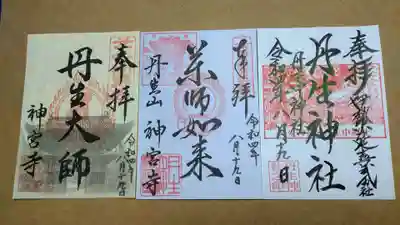 奉拝
丹生神社
令和四年八月十九日
丹生神社
奉拝
薬師如来
丹生山 神宮寺
令和四年
八月十九日
奉拝
丹生大師
神宮寺
令和四年
八月十九日